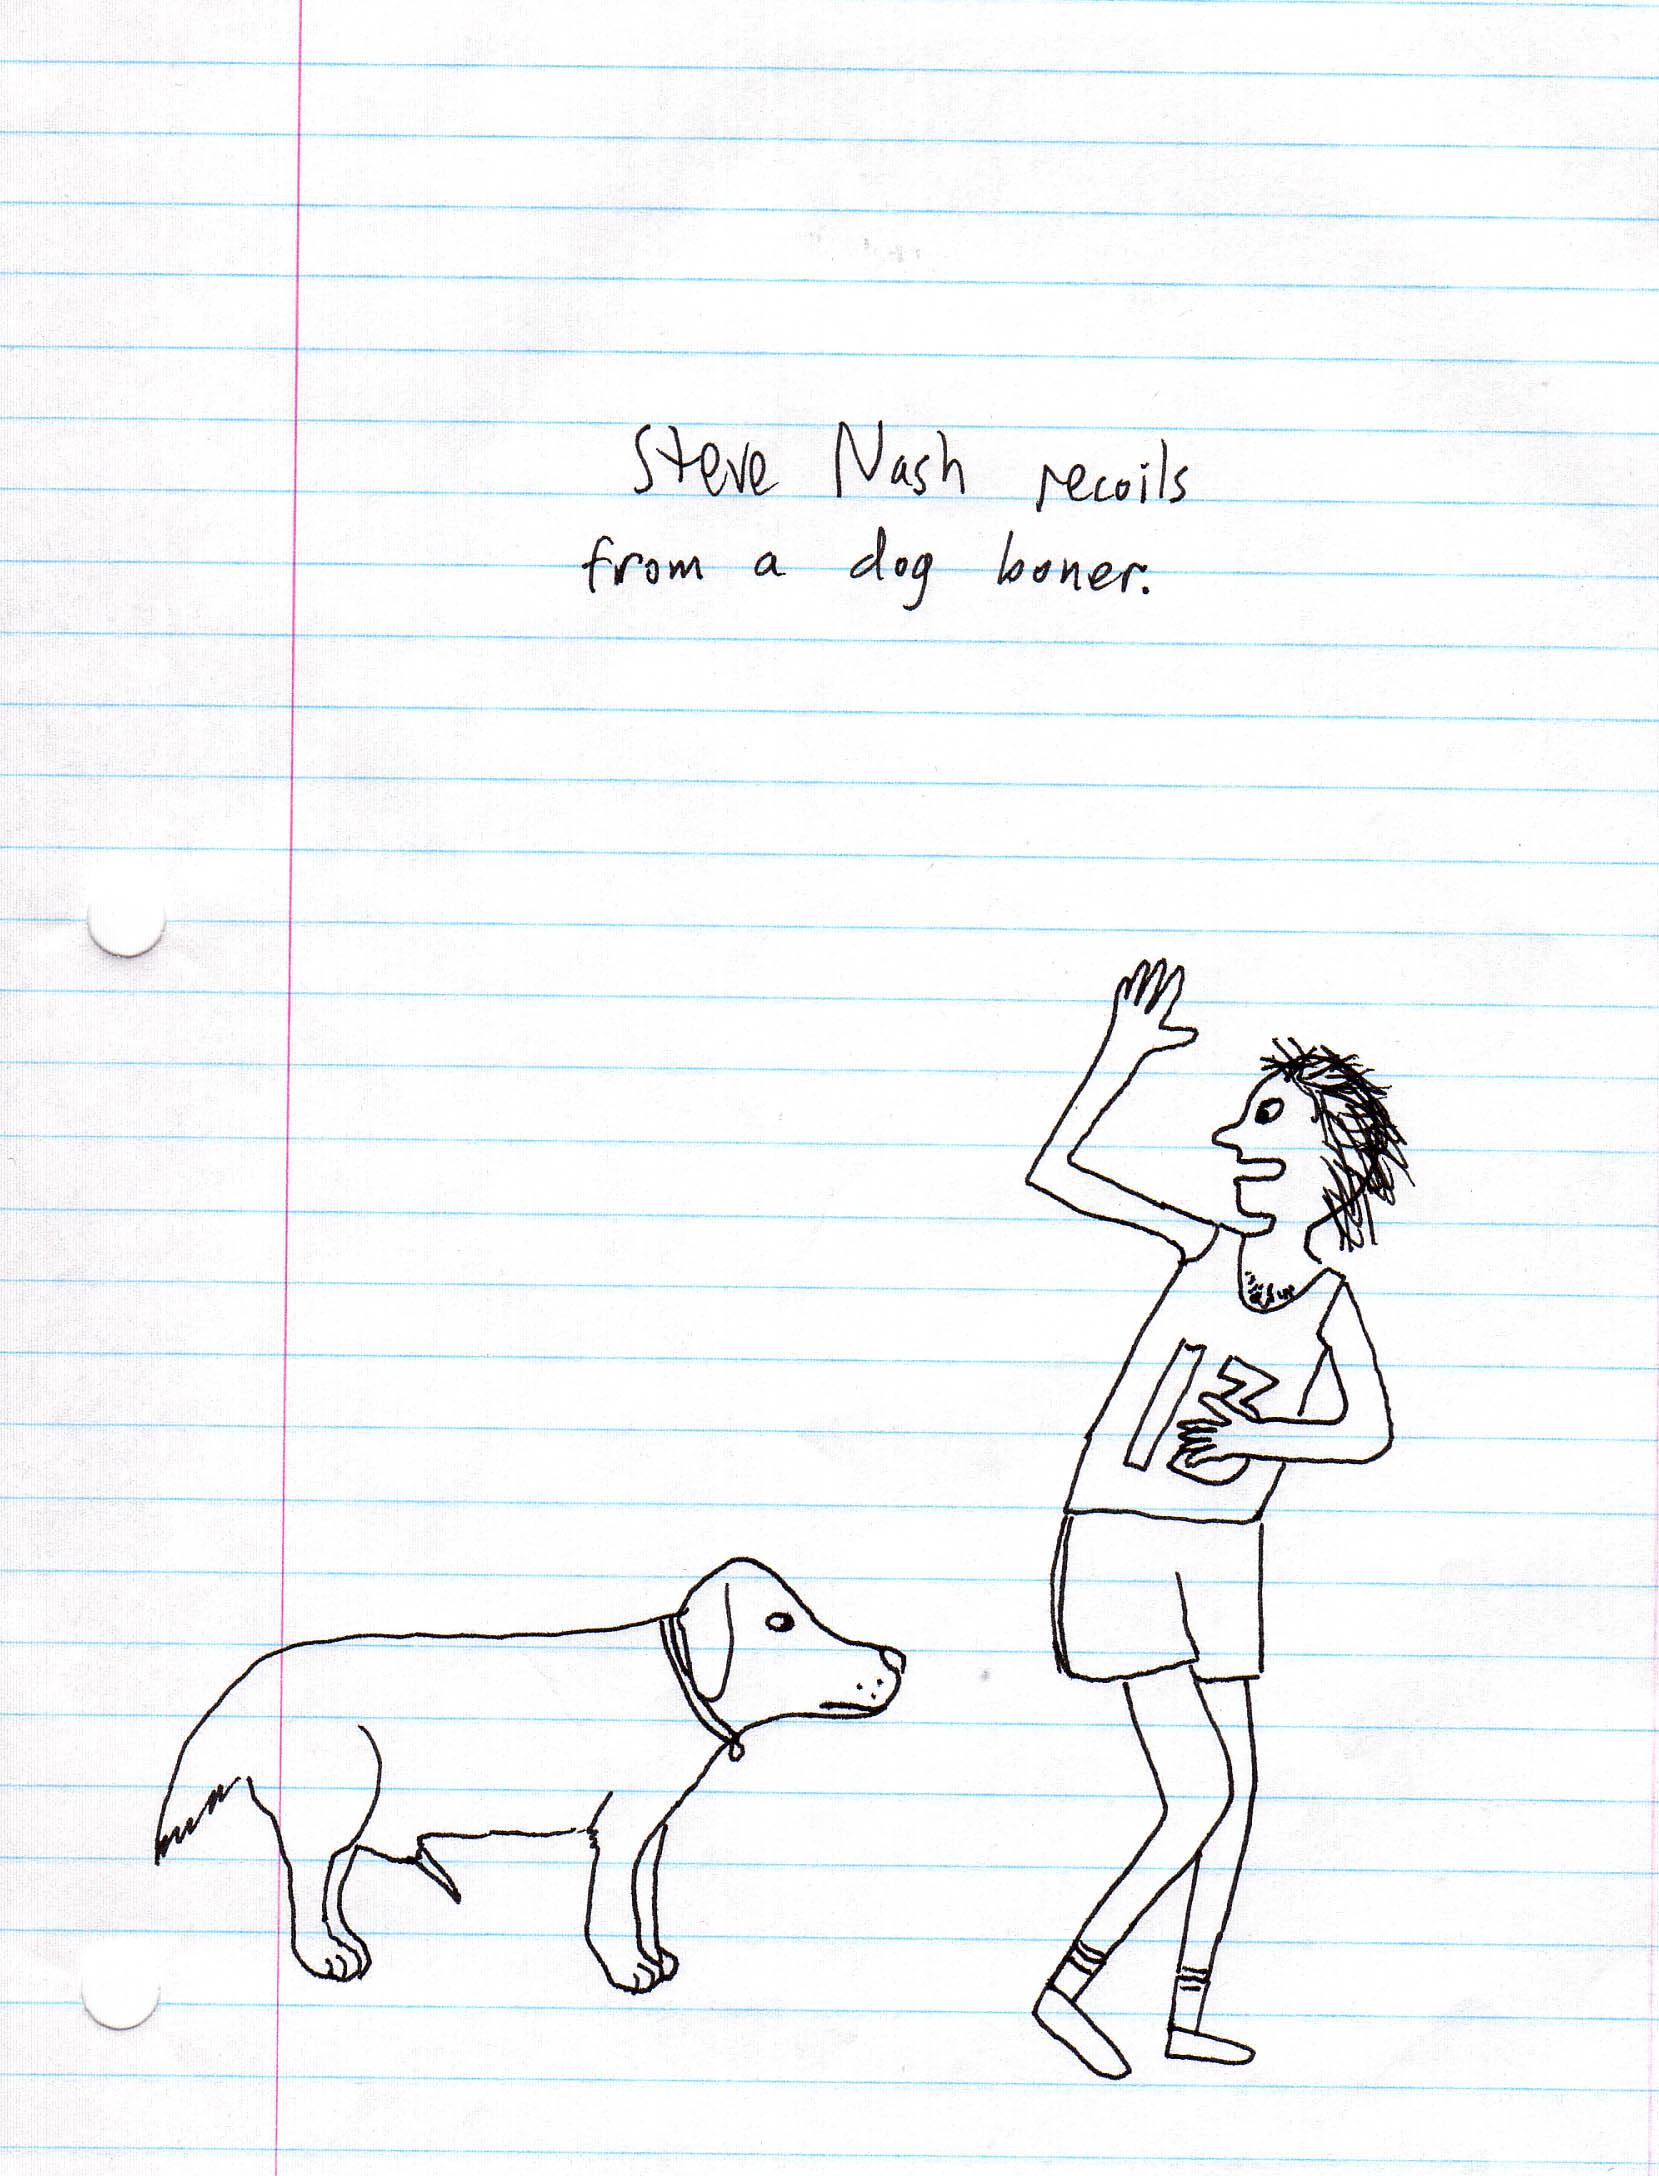 Steve Nash recoils
from a dog boner.
13